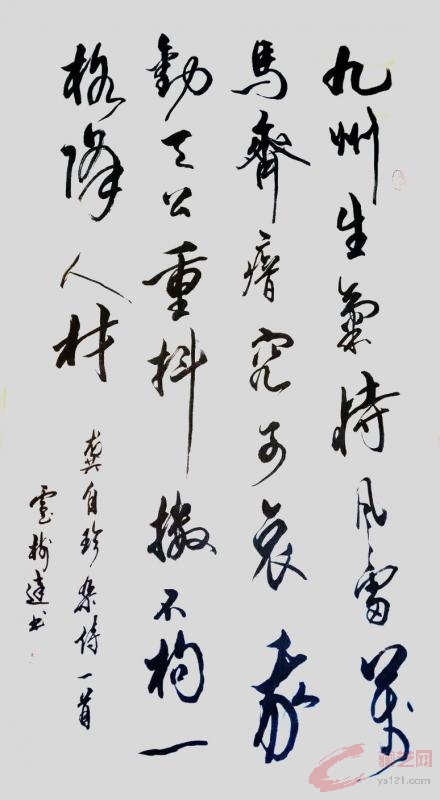 九州生氣恃风雷萬
馬齊瘖究可哀我
勸天公重抖擻不拘一
格降人材
龚自珍杂诗一首
樹達书
藏艺网
ys121.com